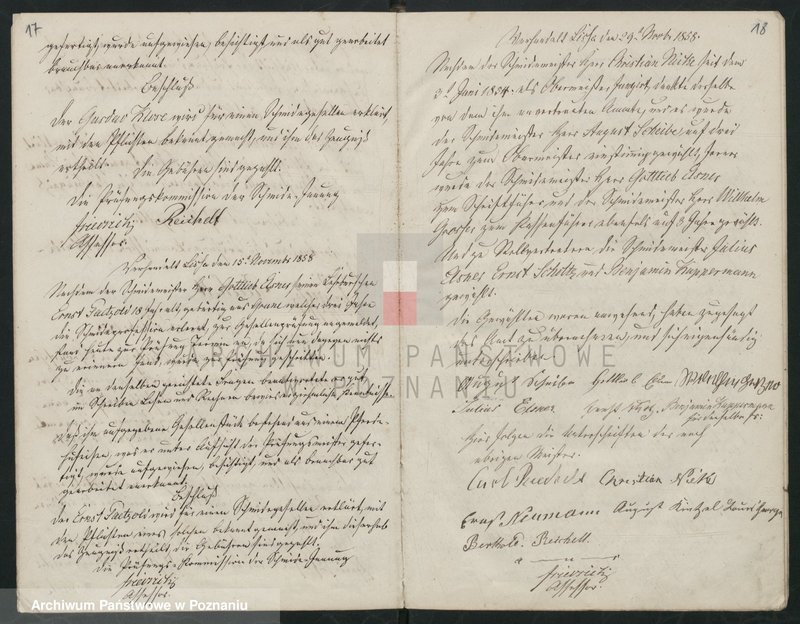 17
gefertigt, wurde aufgewiesen, besichtigt und als gut gearbeitet
brauchbar anerkannt.
Beschluß
Der Gustav Klose wird für einen Schmiedegesellen erklärt,
mit den Pflichten bekannt gemacht, und ihm das Zeugniß
ertheilt. Die Gebühren sind gezahlt.
Die Prüfungskommission der Schmiede-Innung
Reichelt
Assessor.
Verhandelt Lissa den 15t November 1858
Nachdem der Schmiedemeister Herr Gottlieb Elsner seinen Lehrburschen
Ernst 18 Jahr alt, gebürtig aus welcher drei Jahre
die Schmiedeprofession erlernt, zur Gesellenprüfung angemeldet,
wurde zur
Die an denselben gerichteten Fragen beantwortete er gut,
im Schreiben Lesen und Rechnen
Das ihm aufgegebene Gesellenstück bestehend aus einem Pferde-
hufeisen, was er unter Aufsicht der Prüfungsmeister gefer-
tigt, wurde aufgewiesen, besichtigt, und als brauchbar gut
gearbeitet anerkannt.
Beschluß
Der Ernst wird für einen Schmiedegesellen erklärt, mit
den Pflichten eines solchen bekannt gemacht, und ihm dieserhalb
das Zeugniß ertheilt, die Gebühren sind gezahlt.
Die Prüfungs-Kommission der Schmiede-Innung
Assessor.
18
Verhandelt Lissa den 29t Novbr 1858.
Nachdem der Schmiedemeister Herr Christian Nitke seit dem
3t Juni 1854. als Obermeister fungirt, dankte derselbe
von dem ihm anvertrauten Amte, und es wurde
der Schmiedemeister Herr August Scheibe, auf drei
Jahre zum Obermeister einstimmig gewählt, ferner
wurde der Schmiedemeister Herr Gottlieb Elsner
zum Schriftführer und der Schmiedemeister Herr Wilhelm
zum Kassenführer ebenfalls auf 3 Jahre gewählt.
Und zu Stellvertretern die Schmiedemeister Julius
Elsner Ernst Scholtz und Benjamin Kuppermann
gewählt.
Die Gewählten waren anwesend, haben zugesagt
das Amt zu übernehmen, und sich eigenhändig
unterschrieben
August Scheibe Gottlieb Elsner
Julius Elsner Ernst Benjamin Kuppermann
Hier folgen die Unterschriften der noch
übrigen Meister.
Carl Christian Nitke
Ernst Neumann August
Berthold Reichelt
Assessor.
ARCHIWUM PAŃSTWOWE
W POZNANIU
Archiwum Państwowe w Poznaniu